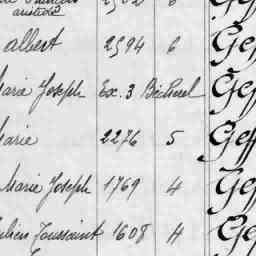 aristide
albert 2594 6 Geff
Marie Joseph Ex. 3 Geff
Marie 2276 5 Geff
Marie Joseph 1769 4 Geff
Julien Toussaint 1608 4 Geff